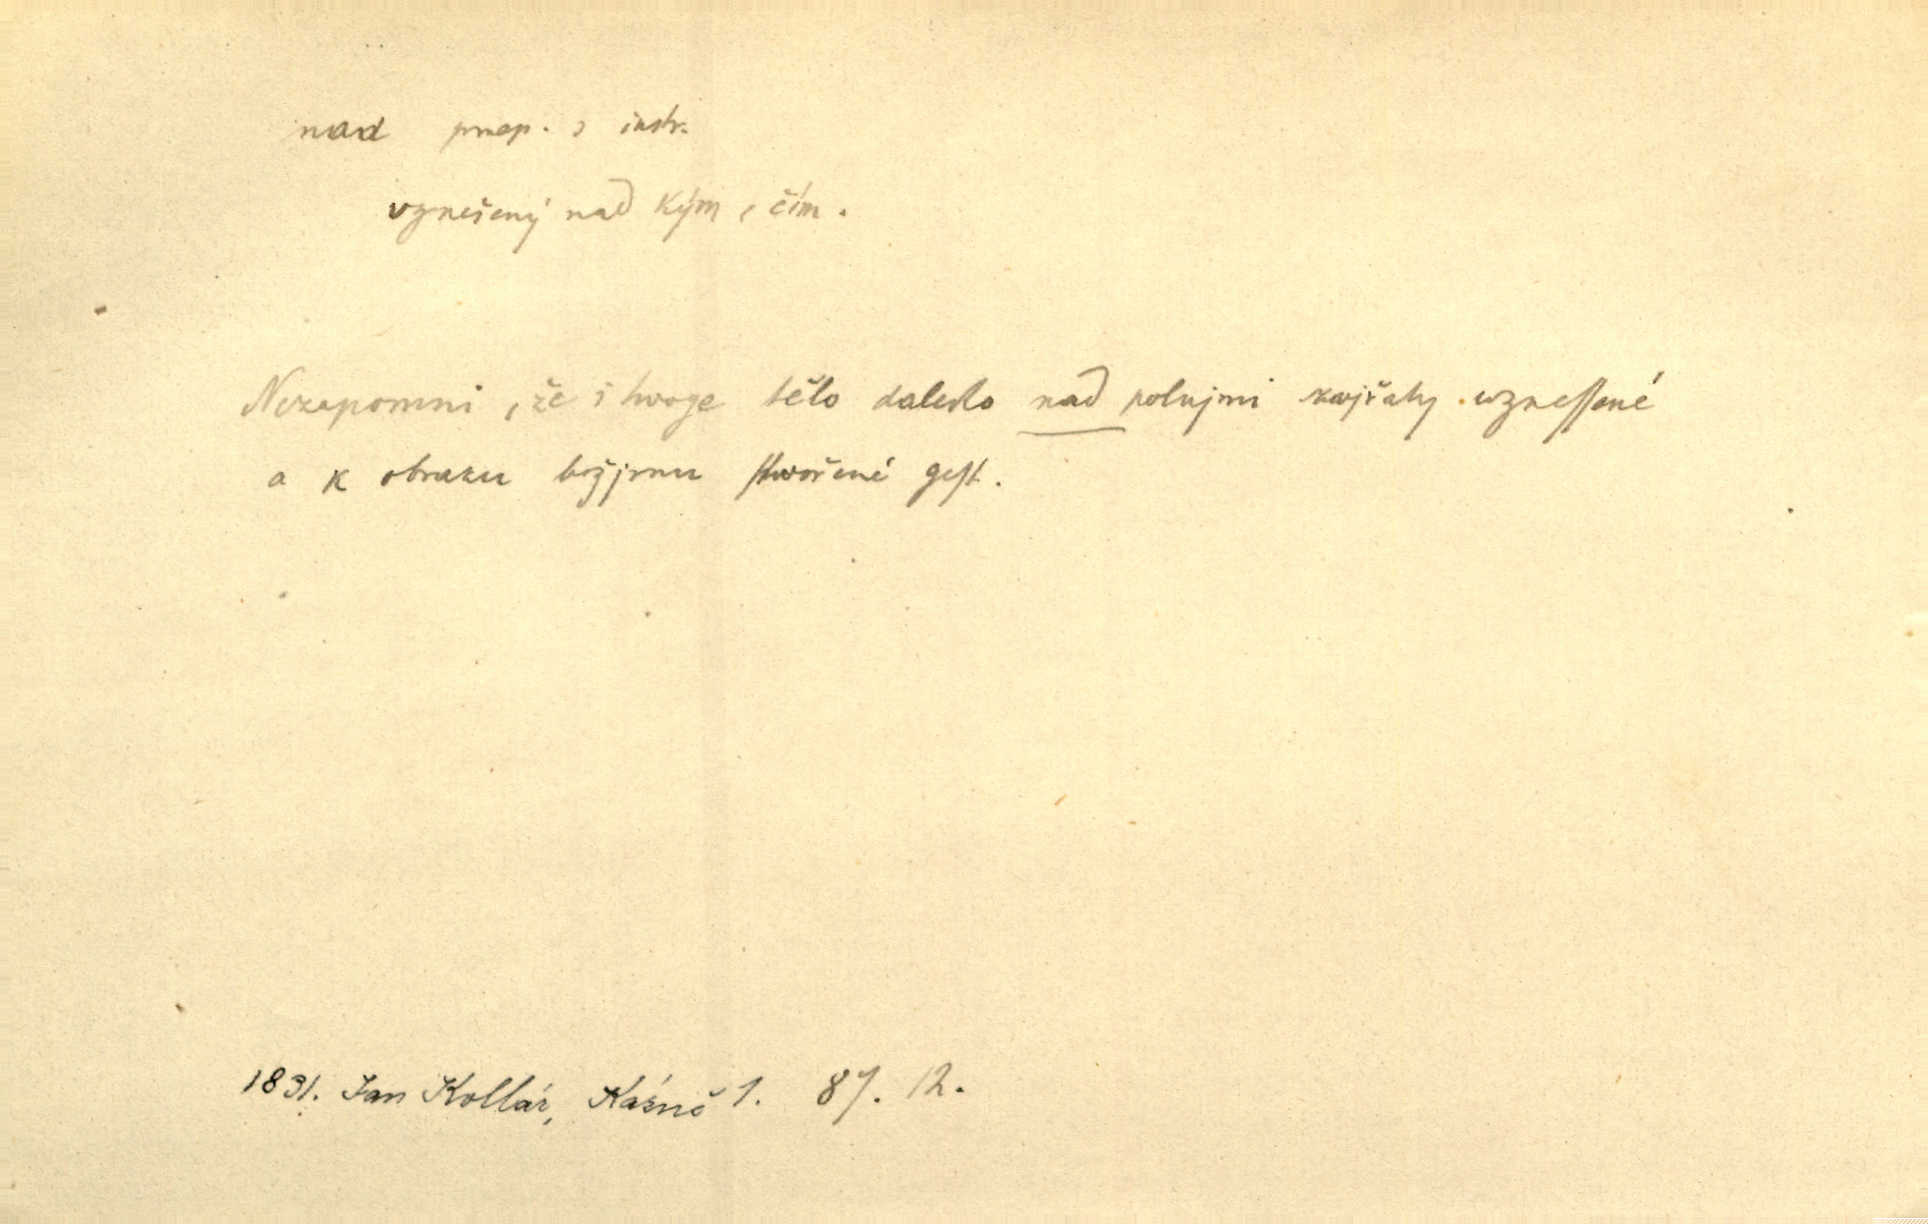 nad praep. s instr.
vznešený nad kým, čím.
Nezapomni, že i twoge tělo daleko nad polnjmi zwjřaty wzneſſené
a k obrazu božjmu ſtwořené geſt.
1831. Jan Kollár, Kázně 1. 87. 12.